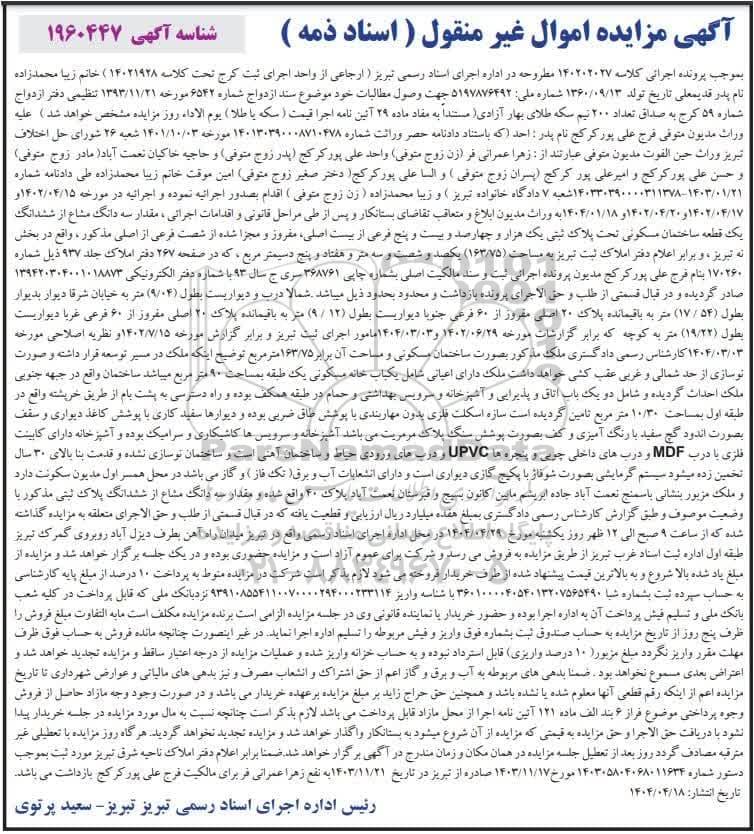 آگهی مزایده اموال غیر منقول ( اسناد ذمه )
شناسه آگهی ۱۹۶۰۴۴۷
بموجب پرونده اجرائی کلاسه ۱۴۰۲۰۲۰۲۷ مطروحه در اداره اجرای اسناد رسمی تبریز ( ارجاعی از واحد اجرای ثبت کرج تحت کلاسه ۱۴۰۲۱۹۲۸ ) خانم زیبا محمدزاده
نام پدر قدیمعلی تاریخ تولد ۱۳۶۰/۰۹/۱۳ شماره ملی: ۵۱۹۷۸۷۶۴۹۲ جهت وصول مطالبات خود موضوع سند ازدواج شماره ۶۵۴۲ مورخه ۱۳۹۳/۱۱/۲۱ تنظیمی دفتر ازدواج
شماره ۵۹ کرج به صداق تعداد ۲۰۰ نیم سکه طلای بهار آزادی( مستنداً به مفاد ماده ۲۹ آئین نامه اجرا قیمت ( سکه یا طلا ) یوم الاداء روز مزایده مشخص خواهد شد ) علیه
وراث مدیون متوفی فرج علی پورکرکج نام پدر : احد (که باستناد دادنامه حصر وراثت شماره ۱۴۰۱۳۰۳۹۰۰۰۸۷۱۰۴۷۸ مورخه ۱۴۰۱/۱۰/۰۳ شعبه ۲۶ شورای حل اختلاف
تبریز وراث حین الفوت مدیون متوفی عبارتند از : زهرا عمرانی فر (زن زوج متوفی) واحد علی پورکرکج (پدر زوج متوفی) و حاجیه خاکیان نعمت آباد( مادر زوج متوفی)
و حسن علی پورکرکج و امیرعلی پور کرکج (پسران زوج متوفی ) و السا علی پورکرکج( دختر صغیر زوج متوفی) امین موقت خانم زیبا محمدزاده طی دادنامه شماره
۱۴۰۳/۰۱/۲۱-۱۴۰۳۳۰۳۹۰۰۰۰۳۱۱۳۷۸شعبه ۷ دادگاه خانواده تبریز ) و زیبا محمدزاده ( زن زوج متوفی ) اقدام بصدور اجرائیه نموده و اجرائیه در مورخه ۱۴۰۲/۰۴/۱۵و
۱۴۰۲/۰۴/۱۷و۱۴۰۲/۰۴/۲۰و ۱۴۰۴/۰۱/۱۸به وراث مدیون ابلاغ و متعاقب تقاضای بستانکار و پس از طی مراحل قانونی و اقدامات اجرائی ، مقدار سه دانگ مشاع از ششدانگ
یک قطعه ساختمان مسکونی تحت پلاک ثبتی یک هزار و چهارصد و بیست و پنج فرعی از بیست اصلی، مفروز و مجزا شده از شصت فرعی از اصلی مذکور ، واقع در بخش
نه تبریز ، و برابر اعلام دفتر املاک ثبت تبریز به مساحت (۱۶۳/۷۵) یکصد و شصت و سه متر و هفتاد و پنج دسیمتر مربع ، که در صفحه ۲۶۷ دفتر املاک جلد ۹۳۷ ذیل شماره
۱۷۰۲۶۰ بنام فرج علی پورکرکج مدیون پرونده اجرائی ثبت و سند مالکیت اصلی بشماره چاپی ۳۶۸۷۶۱ سری ج سال ۹۳ با شماره دفتر الکترونیکی ۱۳۹۴۲۰۳۰۴۰۰۱۰۱۸۸۷۳
صادر گردیده و در قبال قسمتی از طلب و حق الاجرای پرونده بازداشت و محدود بحدود ذیل میباشد .شمالا درب و دیواریست بطول (۹/۰۴) متر به خیابان شرقا دیوار بدیوار
بطول (۵۴ / ۱۷) متر به باقیمانده پلاک ۲۰ اصلی مفروز از ۶۰ فرعی جنوبا دیواریست بطول (۱۲ / ۹) متر به باقیمانده پلاک ۲۰ اصلی مفروز از ۶۰ فرعی غربا دیواریست
بطول (۱۹/۲۲) متر به کوچه که برابر گزارشات مورخه ۱۴۰۲/۰۶/۲۹ و۱۴۰۴/۰۳/۰۳مامور اجرای ثبت تبریز و برابر گزارش مورخه ۱۴۰۲/۷/۱۵و نظریه اصلاحی مورخه
۱۴۰۴/۰۳/۰۳کارشناس رسمی دادگستری ملک مذکور بصورت ساختمان مسکونی و مساحت آن برابر۱۶۳/۷۵مترمربع توضیح اینکه ملک در مسیر توسعه قرار داشته و صورت
نوسازی از حد شمالی و غربی عقب کشی خواهد داشت ملک دارای اعیانی شامل یکباب خانه مسکونی یک طبقه بمساحت ۹۰ متر مربع میباشد ساختمان واقع در جبهه جنوبی
ملک احداث گردیده و شامل دو یک باب اتاق و پذیرایی و آشپزخانه و سرویس بهداشتی و حمام در طبقه همکف بوده و راه دسترسی به پشت بام از طریق خرپشته واقع در
طبقه اول بمساحت ۱۰/۳۰ متر مربع تامین گردیده است سازه اسکلت فلزی بدون مهاربندی با پوشش طاق ضربی بوده و دیوارها سفید کاری با پوشش کاغذ دیواری و سقف
بصورت اندود گچ سفید با رنگ آمیزی و کف بصورت پوشش سنگ پلاک مرمریت می باشد. آشپزخانه و سرویس ها کاشیکاری و سرامیک بوده و آشپزخانه دارای کابینت
فلزی با درب MDF و درب های داخلی چوبی و پنجره ها UPVC و درب های ورودی حیاط و ساختمان آهنی است و ساختمان نوسازی نشده و قدمت بنا بالای ۳۰ سال
تخمین زده میشود سیستم گرمایشی بصورت شوفاژ با پکیج گازی دیواری است و دارای انشعابات آب و برق( تک فاز ) و گاز می باشد در محل همسر اول مدیون سکونت دارد
و ملک مزبور بنشانی باسمنج نعمت آباد جاده ابریشم مابین کانون بسیج و قبرستان نعمت آباد پلاک ۴۰ واقع شده و مقدار سه دانگ مشاع از ششدانگ پلاک ثبتی مذکور با
وضعیت موصوف و طبق گزارش کارشناس رسمی دادگستری بمبلغ هفده میلیارد ریال ارزیابی و قطعیت یافته که در قبال قسمتی از طلب و حق الاجرای متعلقه به مزایده گذاشته
شده که از ساعت ۹ صبح الی ۱۲ ظهر روز یکشنبه مورخ ۱۴۰۴/۰۴/۲۹ در محل اداره اجرای اسناد رسمی واقع در تبریز میدان راه آهن بطرف دیزل آباد روبروی گمرک تبریز
طبقه اول اداره ثبت اسناد غرب تبریز از طریق مزایده به فروش می رسد و شرکت برای عموم آزاد است و مزایده حضوری بوده و در یک جلسه برگزار خواهد شد و مزایده از
مبلغ یاد شده بالا شروع و به بالاترین قیمت پیشنهاد شده از طرف خریدار فروخته می شود لازم بذکر است شرکت در مزایده منوط به پرداخت ۱۰ درصد از مبلغ پایه کارشناسی
به حساب سپرده ثبت بشماره شبا ۳۶۰۱۰۰۰۰۴۰۵۴۰۱۳۲۰۷۵۶۵۴۹۰ با شناسه واریز ۹۳۹۱۰۸۵۵۴۱۱۰۰۷۰۰۰۰۲۹۴۰۰۰۲۳۳۱۱۴ نزدبانک ملی که قابل پرداخت در کلیه شعب
بانک ملی و تسلیم فیش پرداخت آن به اداره اجرا بوده و حضور خریدار یا نماینده قانونی وی در جلسه مزایده الزامی است برنده مزایده مکلف است مابه التفاوت مبلغ فروش را
ظرف پنج روز از تاریخ مزایده به حساب صندوق ثبت بشماره فوق واریز و فیش مربوطه را تسلیم اداره اجرا نماید. در غیر اینصورت چنانچه مانده فروش به حساب فوق ظرف
مهلت مقرر واریز نگردد مبلغ مزبور( ۱۰ درصد واریزی) قابل استرداد نبوده و به حساب خزانه واریز شده و عملیات مزایده از درجه اعتبار ساقط و مزایده تجدید خواهد شد و
اعتراض بعدی مسموع نخواهد بود . ضمنا بدهی های مربوطه به آب و برق و گاز اعم از حق اشتراک و انشعاب مصرف و نیز بدهی های مالیاتی و عوارض شهرداری تا تاریخ
مزایده اعم از اینکه رقم قطعی آنها معلوم شده یا نشده باشد و همچنین حق حراج زاید بر مبلغ مزایده برعهده خریدار می باشد و در صورت وجود وجه مازاد حاصل از فروش
وجوه پرداختی موضوع فراز ۶ بند الف ماده ۱۲۱ آئین نامه اجرا از محل مازاد قابل پرداخت می باشد لازم بذکر است چنانچه نسبت به مال مورد مزایده در جلسه خریدار پیدا
نشود با دریافت حق الاجرا و حق مزایده به قیمتی که مزایده از آن شروع میشود به بستانکار واگذار خواهد شد و مزایده تجدید نخواهد گردید. هرگاه روز مزایده با تعطیلی غیر
مترقبه مصادف گردد روز بعد از تعطیل جلسه مزایده در همان مکان و زمان مندرج در آگهی برگزار خواهد شد.ضمنا برابر اعلام دفتر املاک ناحیه شرق تبریز مورد ثبت بموجب
دستور شماره ۱۴۰۳۰۵۸۰۴۰۶۸۰۱۱۶۳۴ مورخ۱۴۰۳/۱۱/۱۷ صادره از تبریز در تاریخ ۱۴۰۳/۱۱/۲۱به نفع زهرا عمرانی فر برای مالکیت فرج علی پور کرکج بازداشت می باشد.
تاریخ انتشار: ۱۴۰۴/۰۴/۱۸
رئیس اداره اجرای اسناد رسمی تبریز تبریز- سعید پرتوی